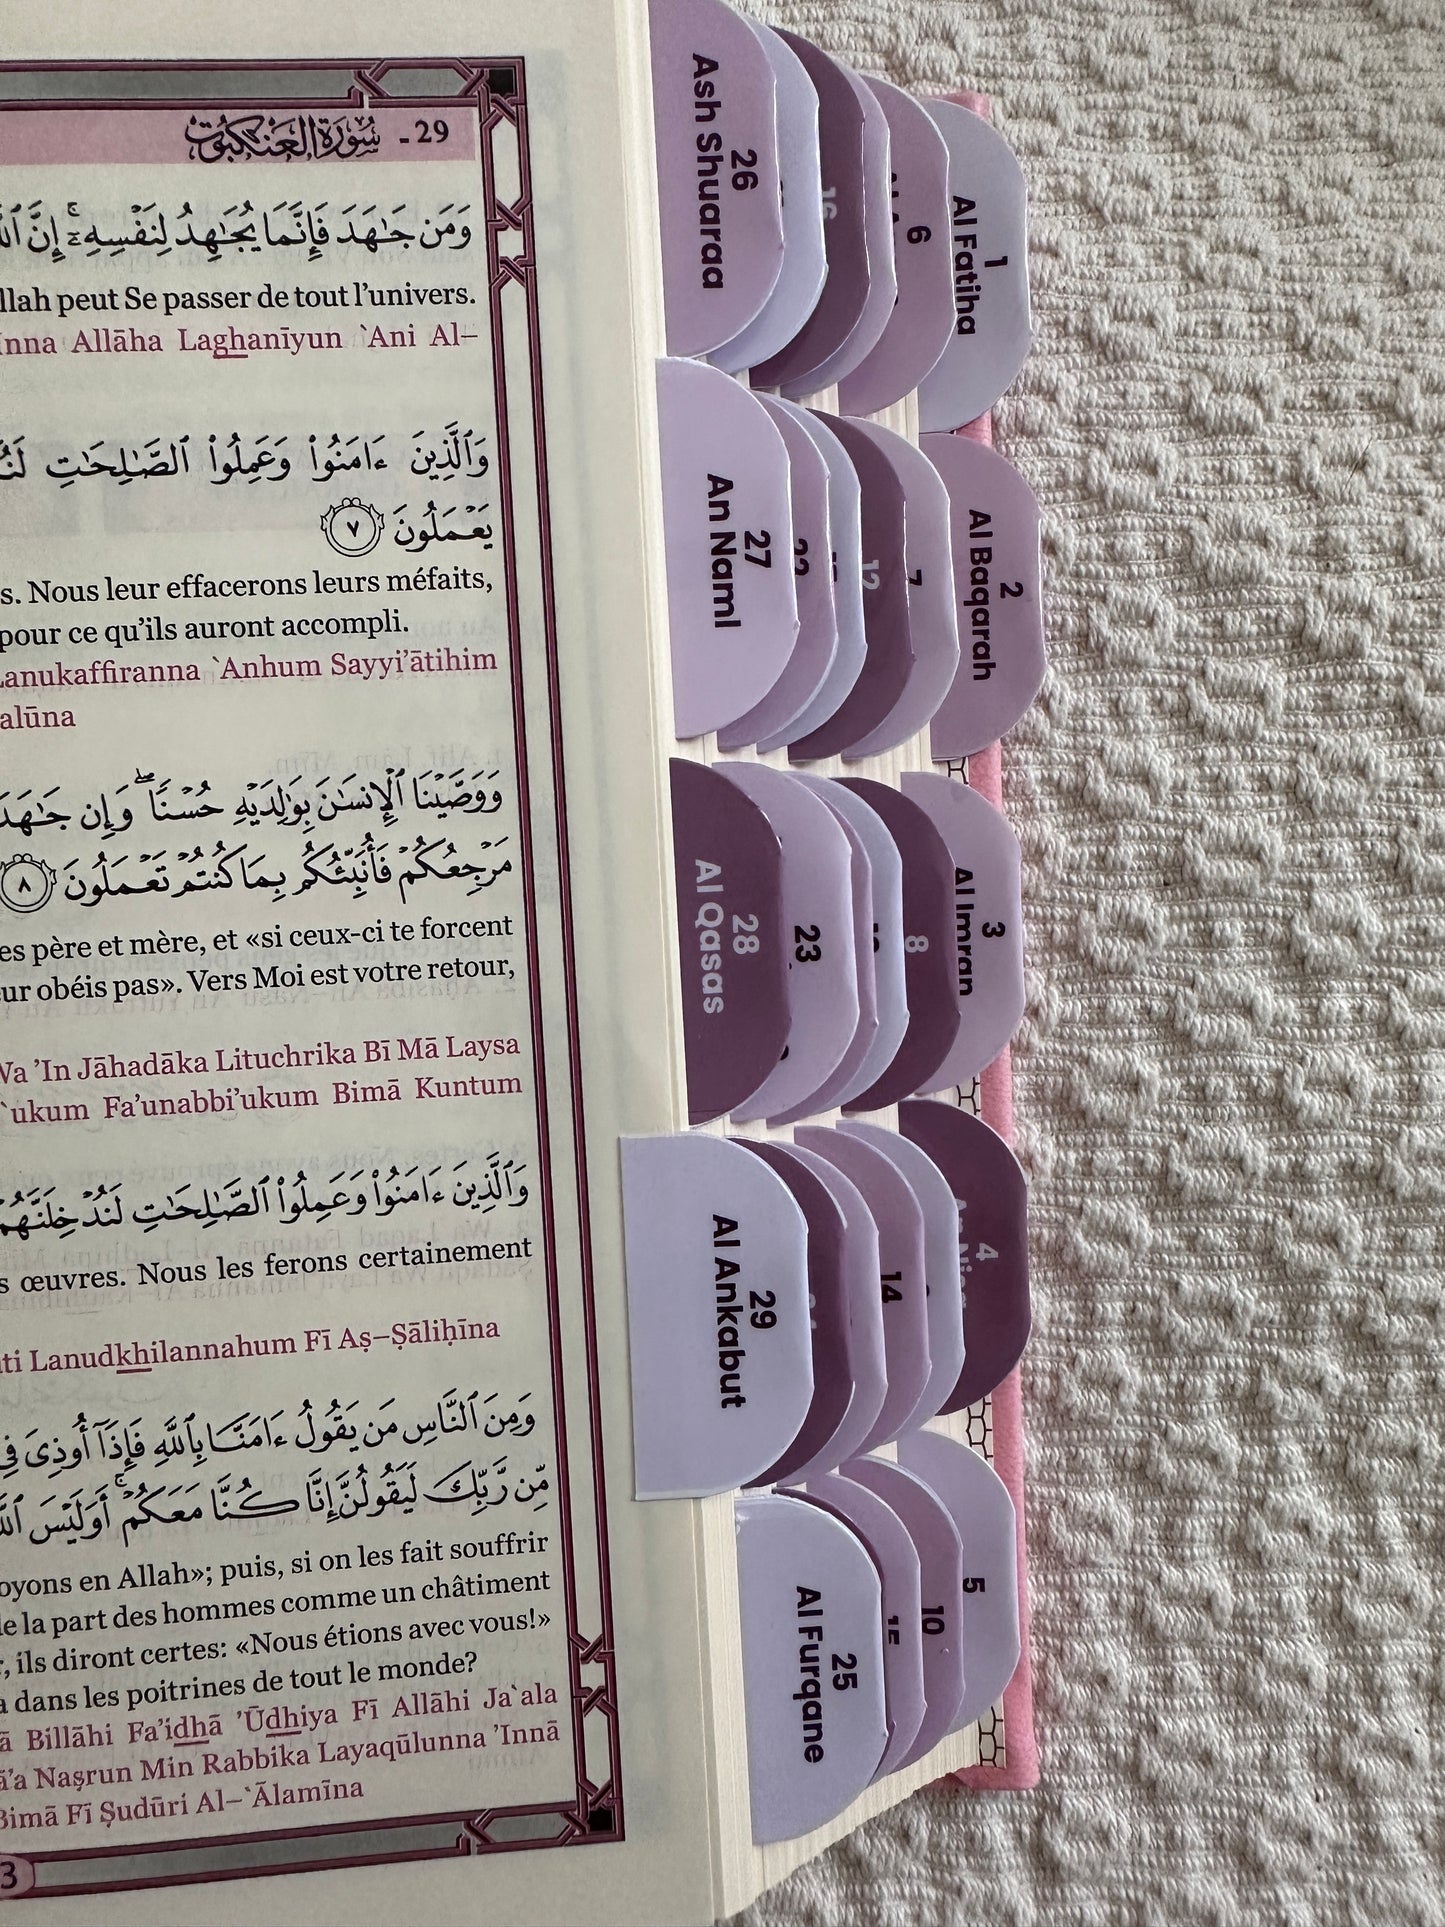 29 - سُورَةُ العَنكَبُوت
وَمَن جَٰهَدَ فَإِنَّمَا يُجَٰهِدُ لِنَفْسِهِۦٓ ۚ إِنَّ
llah peut Se passer de tout l’univers.
Inna Allāha Laghanīyun `Ani Al–
وَٱلَّذِينَ ءَامَنُوا۟ وَعَمِلُوا۟ ٱلصَّٰلِحَٰتِ
يَعْمَلُونَ ٧
s. Nous leur effacerons leurs méfaits,
pour ce qu’ils auront accompli.
Lanukaffiranna `Anhum Sayyi’ātihim
alūna
وَوَصَّيْنَا ٱلْإِنسَٰنَ بِوَٰلِدَيْهِ حُسْنًا ۖ وَإِن جَٰهَدَ
مَرْجِعُكُمْ فَأُنَبِّئُكُم بِمَا كُنتُمْ تَعْمَلُونَ ٨
es père et mère, et «si ceux-ci te forcent
ur obéis pas». Vers Moi est votre retour,
Wa ’In Jāhadāka Lituchrika Bī Mā Laysa
`ukum Fa’unabbi’ukum Bimā Kuntum
وَٱلَّذِينَ ءَامَنُوا۟ وَعَمِلُوا۟ ٱلصَّٰلِحَٰتِ لَنُدْخِلَنَّهُمْ
s œuvres. Nous les ferons certainement
ti Lanudkhilannahum Fī Aṣ–Ṣāliḥīna
وَمِنَ ٱلنَّاسِ مَن يَقُولُ ءَامَنَّا بِٱللَّهِ فَإِذَآ أُوذِىَ فِى
مِّن رَّبِّكَ لَيَقُولُنَّ إِنَّا كُنَّا مَعَكُمْ ۚ أَوَلَيْسَ
oyons en Allah»; puis, si on les fait souffrir
de la part des hommes comme un châtiment
r, ils diront certes: «Nous étions avec vous!»
a dans les poitrines de tout le monde?
ā Billāhi Fa’idhā ’Ūdhiya Fī Allāhi Ja`ala
ā’a Naṣrun Min Rabbika Layaqūlunna ’Innā
Bimā Fī Ṣudūri Al–`Ālamīna
3
26
Ash Shuaraa
16
6
1
Al Fatiha
27
An Naml
22
12
7
2
Al Baqarah
28
Al Qasas
23
8
3
Al Imran
29
Al Ankabut
14
4
25
Al Furqane
15
10
5